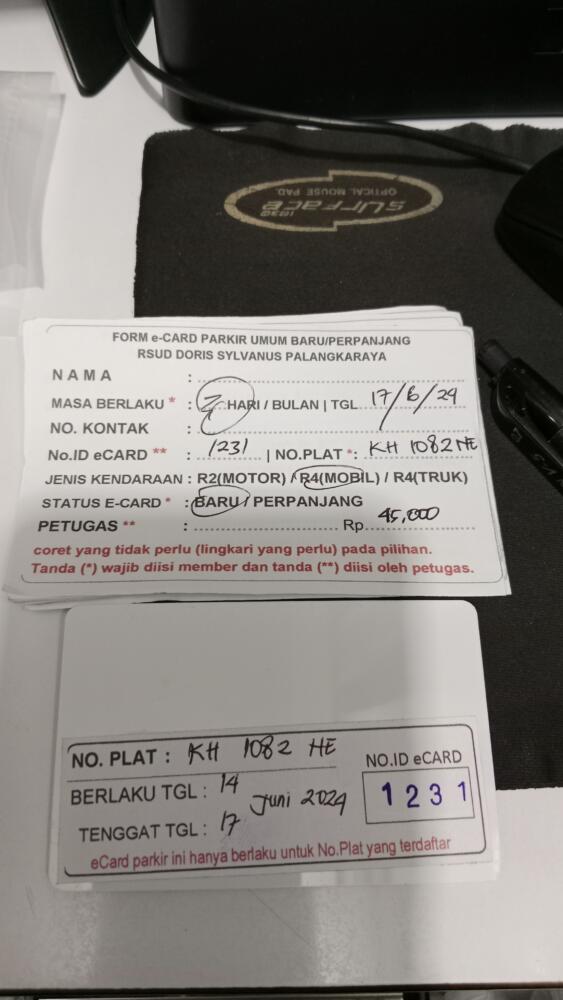 surface
1030
OPTICAL MOUSE PAD.
FORM e-CARD PARKIR UMUM BARU/PERPANJANG
RSUD DORIS SYLVANUS PALANGKARAYA
NAMA :
MASA BERLAKU * : HARI / BULAN | TGL. 17/6/24
NO. KONTAK :
No.ID eCARD ** : 1231 | NO.PLAT *: KH 1082 HE
JENIS KENDARAAN : R2(MOTOR) / R4(MOBIL) / R4(TRUK)
STATUS E-CARD * : BARU / PERPANJANG
PETUGAS ** : Rp. 45,000
coret yang tidak perlu (lingkari yang perlu) pada pilihan.
Tanda (*) wajib diisi member dan tanda (**) diisi oleh petugas.
NO. PLAT : KH 1082 HE
NO.ID eCARD
BERLAKU TGL : 14 Juni 2024
1231
TENGGAT TGL : 17
eCard parkir ini hanya berlaku untuk No.Plat yang terdaftar